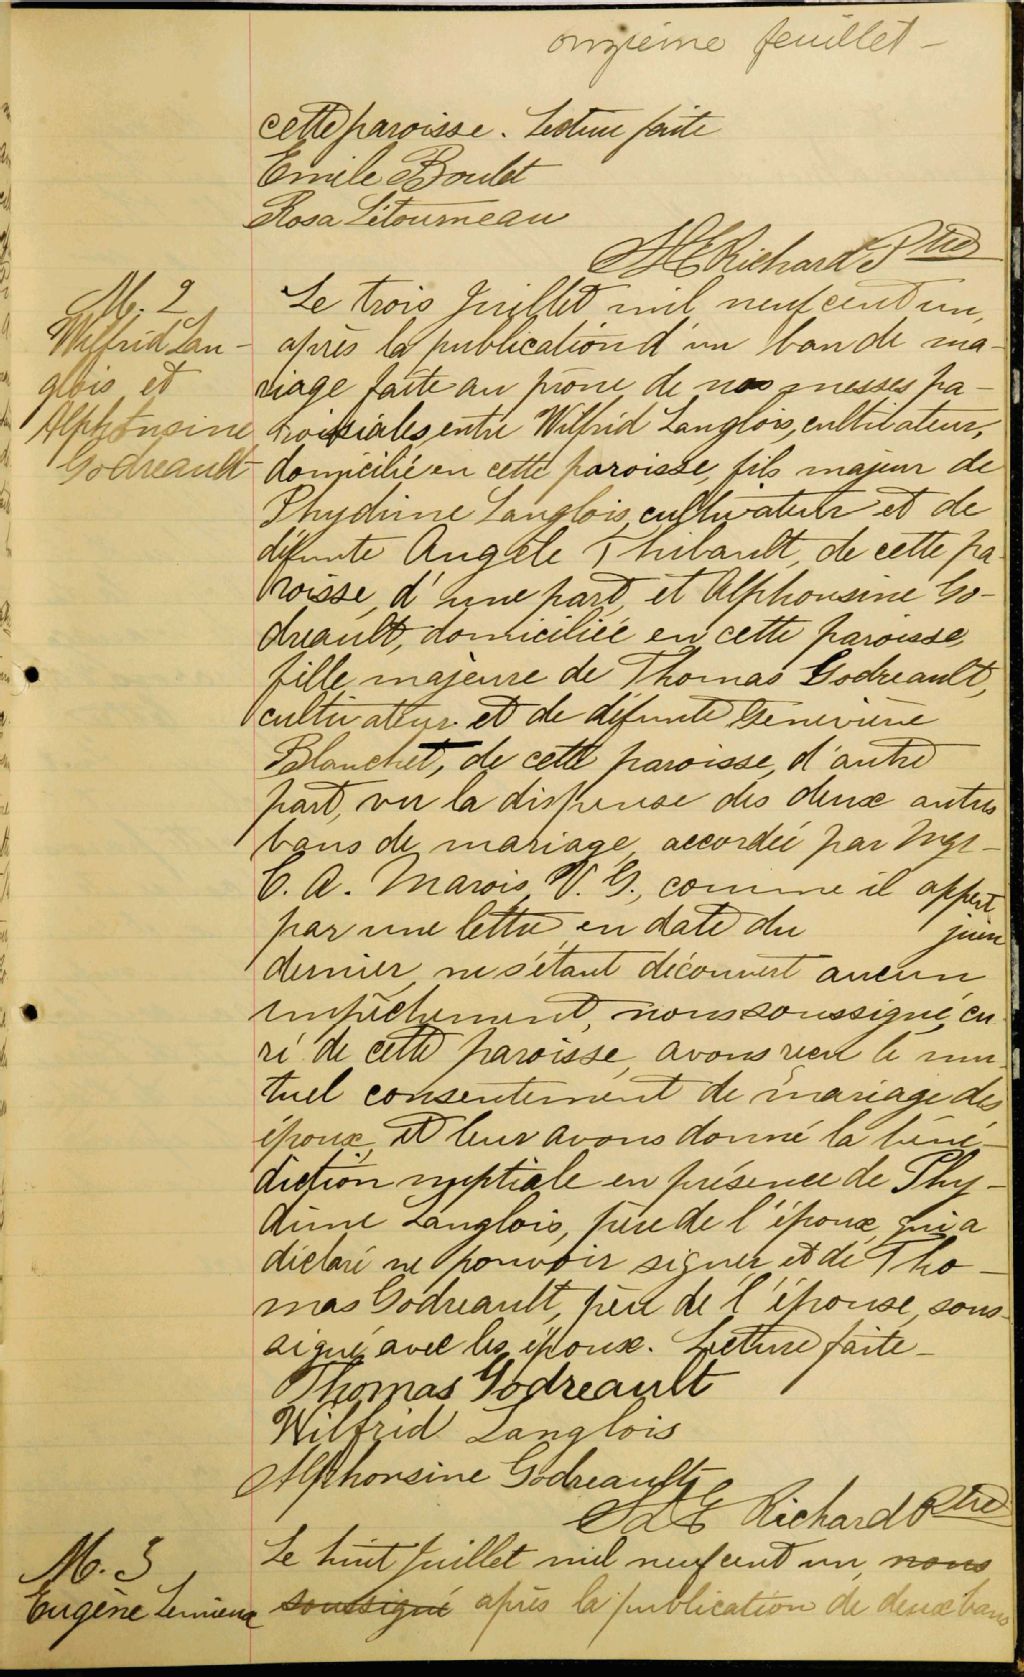 onzième feuillet -
cette paroisse. Lecture faite
Emile Boulet
Rosa Létourneau
Richard Ptre
M. 2
Wilfrid Lan-
glois et
Alphonsine
Godreault
Le trois Juillet mil neuf cent un,
après la publication d'un ban de ma-
riage faite au prône de nos messes pa-
roissiales, entre Wilfrid Langlois, cultivateur,
domicilié en cette paroisse, fils majeur de
Phydime Langlois, cultivateur et de
défunte Angèle Thibault, de cette pa-
roisse, d'une part, et Alphonsine Go-
dreault, domiciliée en cette paroisse,
fille majeure de Thomas Godreault,
cultivateur et de défunte Geneviève
Blanchet, de cette paroisse, d'autre
part, vu la dispense des deux autres
bans de mariage, accordée par Mgr
C. A. Marois, V. G., comme il appert
par une lettre en date du juin
dernier, ne s'étant découvert aucun
empêchement, nous soussigné, cu-
ré de cette paroisse, avons reçu le mu-
tuel consentement de mariage des
époux, et leur avons donné la béné-
diction nuptiale en présence de Phy-
dime Langlois, père de l'époux, qui a
déclaré ne pouvoir signer et de Tho-
mas Godreault, père de l'épouse, sous-
signé avec les époux. Lecture faite -
Thomas Godreault
Wilfrid Langlois
Alphonsine Godreault
Richard Ptre
M. 3
Eugène Lemieux
Le huit Juillet mil neuf cent un, nous
soussigné après la publication de deux bans